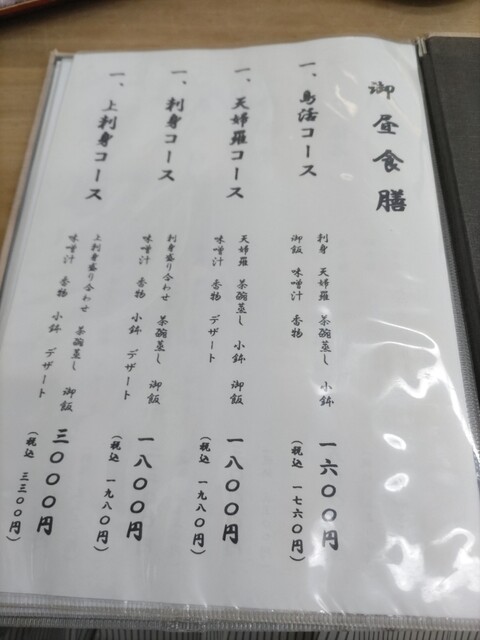 御昼食膳
一、鳥活コース
刺身 天婦羅 茶碗蒸し 小鉢
御飯 味噌汁 香物
一六〇〇円
（税込 一七六〇円）
一、天婦羅コース
天婦羅 茶碗蒸し 小鉢 御飯
味噌汁 香物 デザート
一八〇〇円
（税込 一九八〇円）
一、刺身コース
刺身盛り合わせ 茶碗蒸し 御飯
味噌汁 香物 小鉢 デザート
一八〇〇円
（税込 一九八〇円）
一、上刺身コース
上刺身盛り合わせ 茶碗蒸し 御飯
味噌汁 香物 小鉢 デザート
三〇〇〇円
（税込 三三〇〇円）